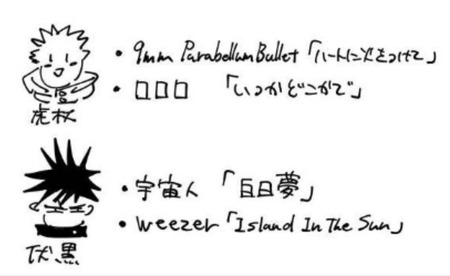 ・9mm Parabellum Bullet「ハートに火をつけて」
・口口口 「いつかどこかで」
虎杖
・宇宙人 「白日夢」
・weezer「Island In The Sun」
伏黒